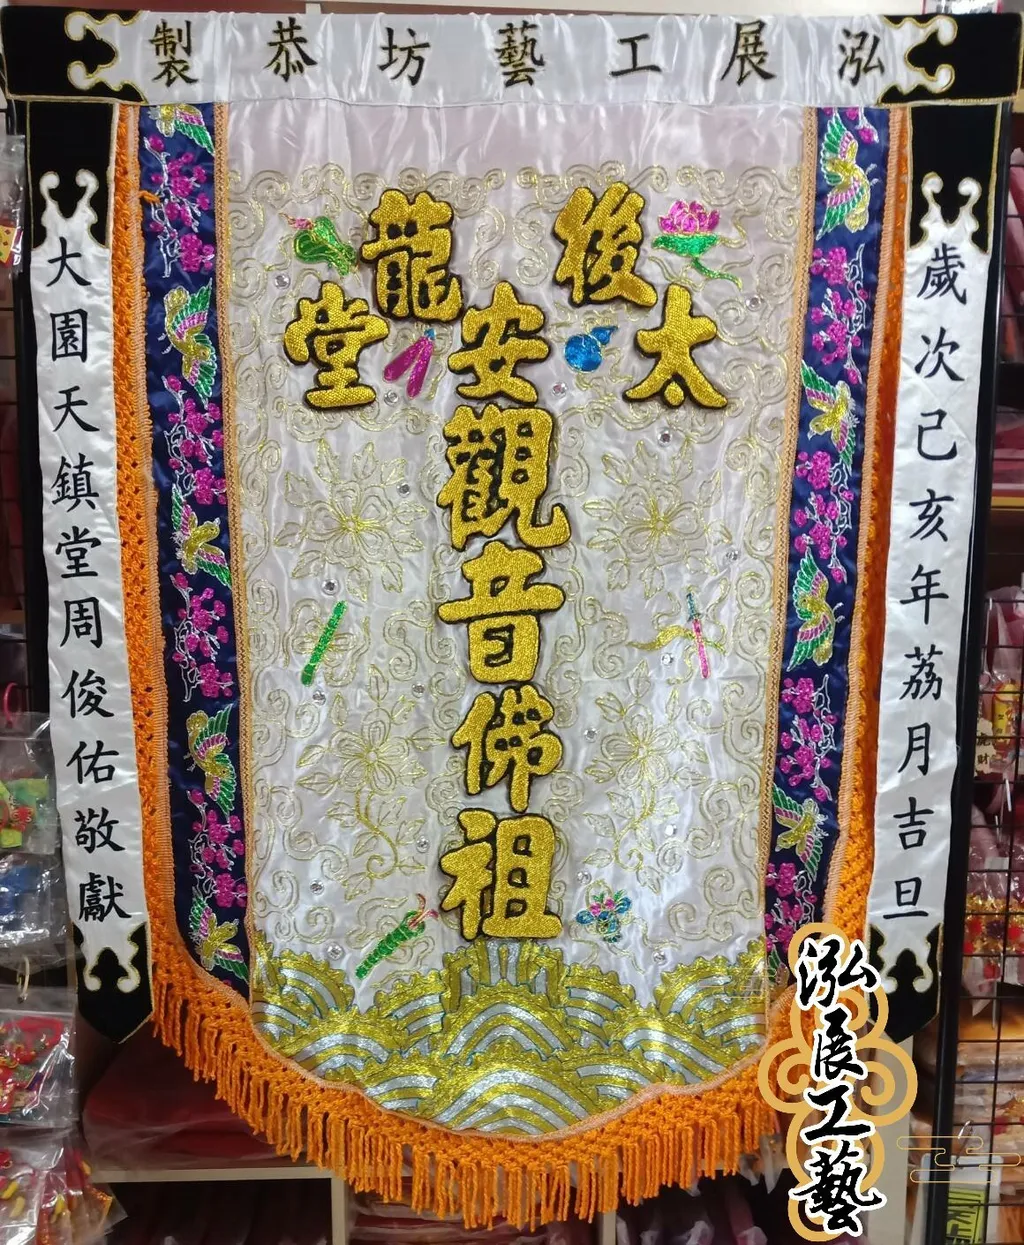 泓展工藝坊恭製
歲次己亥年荔月吉旦
後太
安
龍堂
觀音佛祖
大園天鎮堂周俊佑敬獻
泓展工藝